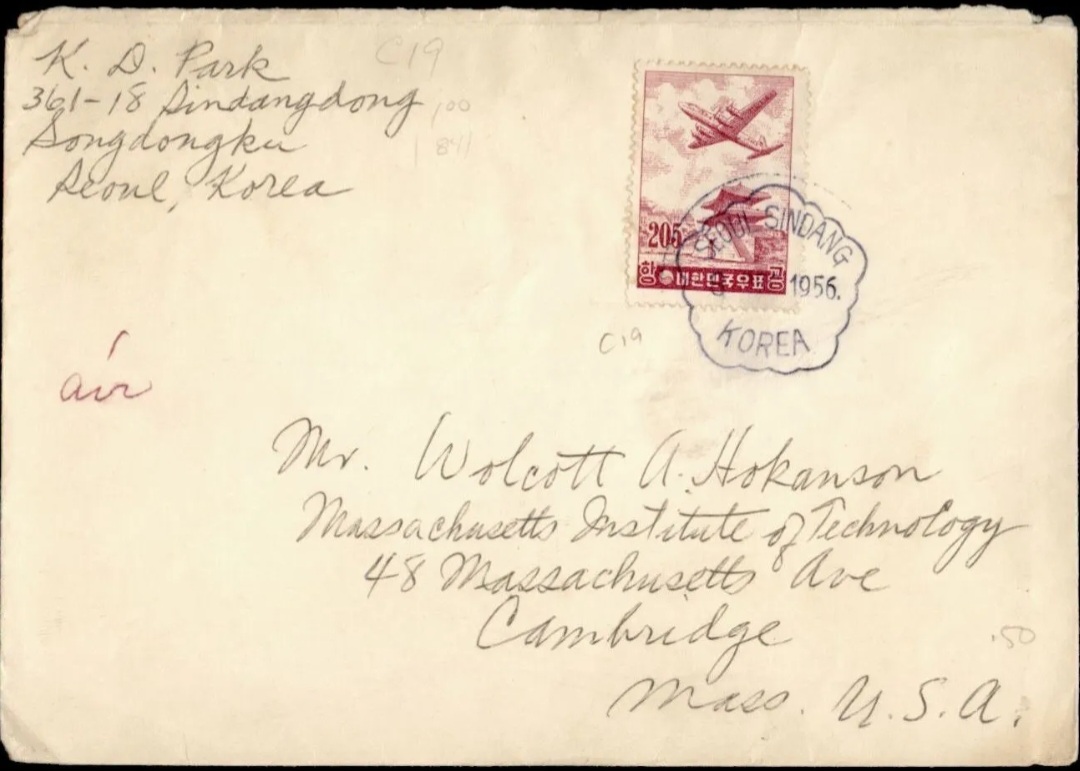 K. D. Park
C19
361-18 Sindangdong
1,00
Songdongku
1 841
Seoul, Korea
205
항 대한민국우표 공
SEOUL SINDANG
1956.
KOREA
C19
air
Mr. Wolcott A. Hokanson
Massachusetts Institute of Technology
48 Massachusetts Ave
Cambridge
.50
Mass. U.S.A.